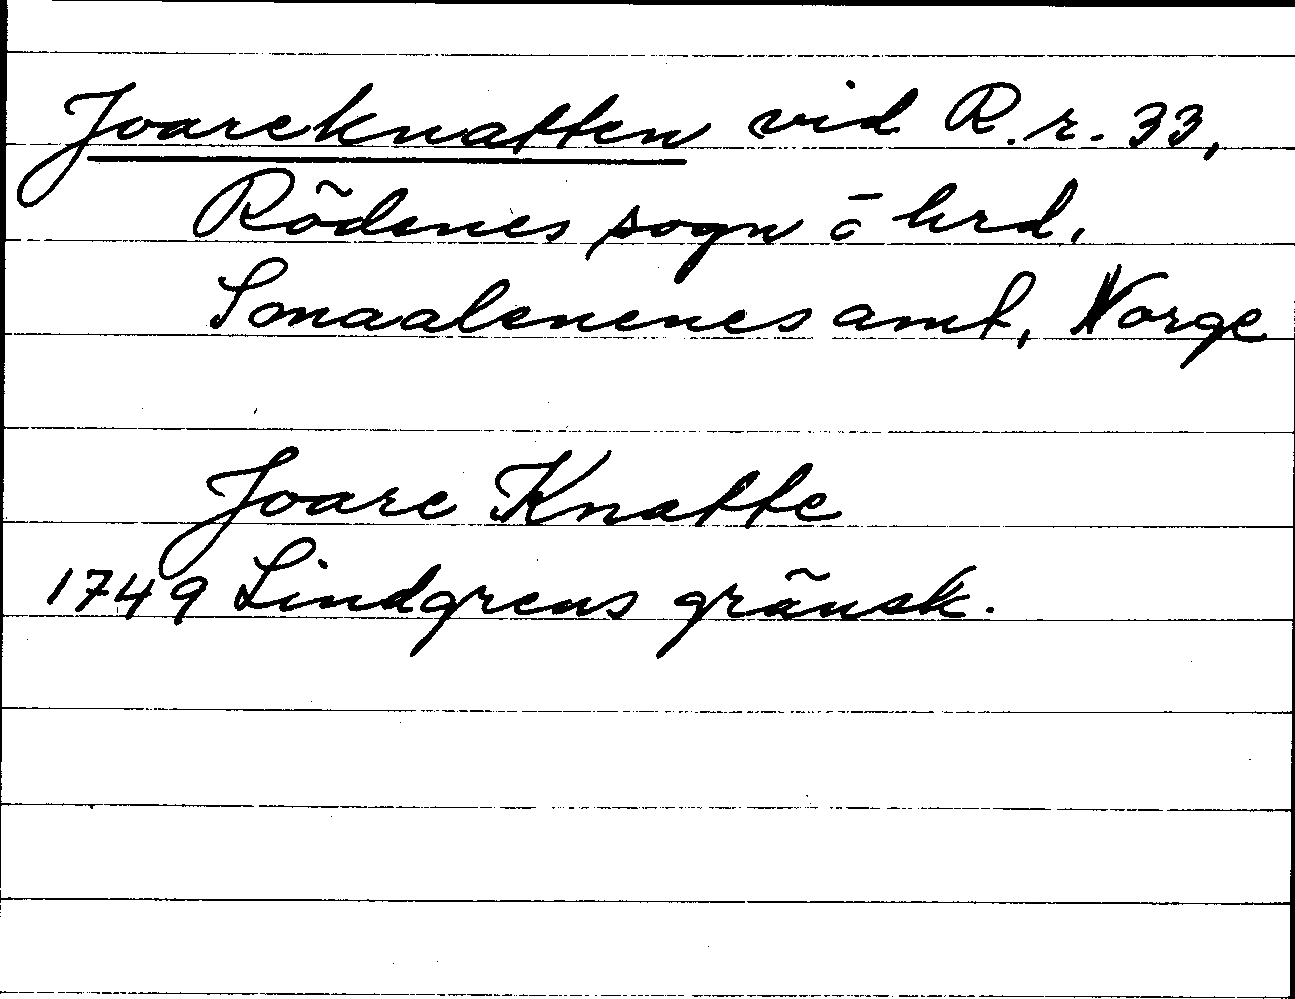 Joareknatten vid R.r. 33,
Rödenes sogn o hrd.
Smaalenenes amt, Norge
Joare Knatte
1749 Lindgrens gränsk.